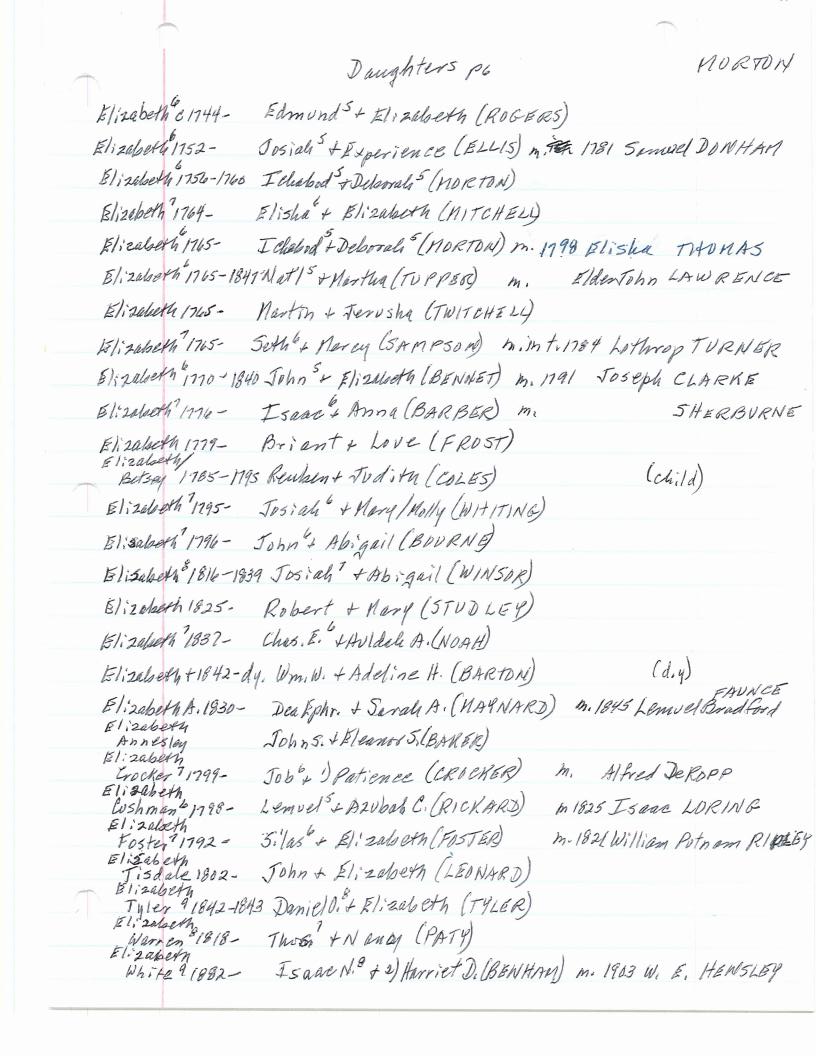 Daughters p6 MORTON
Elizabeth⁶ c 1744- Edmund⁵ + Elizabeth (ROGERS)
Elizabeth⁶ 1752- Josiah⁵ + Experience (ELLIS) m. 1781 Samuel DONHAM
Elizabeth⁶ 1756-1760 Ichabod⁵ + Deborah⁵ (MORTON)
Elizabeth⁷ 1764- Elisha⁶ + Elizabeth (MITCHELL)
Elizabeth⁶ 1765- Ichabod⁵ + Deborah⁵ (MORTON) m. 1798 Elisha THOMAS
Elizabeth⁶ 1765-1847 Nat'l⁵ + Martha (TUPPER) m. Elder John LAWRENCE
Elizabeth 1765- Martin + Jerusha (TWITCHELL)
Elizabeth⁷ 1765- Seth⁶ + Mercy (SAMPSON) m.int. 1784 Lothrop TURNER
Elizabeth⁶ 1770-1840 John⁵ + Elizabeth (BENNET) m. 1791 Joseph CLARKE
Elizabeth⁷ 1776- Isaac⁶ + Anna (BARBER) m. SHERBURNE
Elizabeth 1779- Briant + Love (FROST)
Elizabeth/
Betsey 1785-1795 Reuben + Judith (COLES) (child)
Elizabeth⁷ 1795- Josiah⁶ + Mary/Molly (WHITING)
Elizabeth⁷ 1796- John⁶ + Abigail (BOURNE)
Elizabeth⁸ 1816-1839 Josiah⁷ + Abigail (WINSOR)
Elizabeth 1825- Robert + Mary (STUDLEY)
Elizabeth⁷ 1837- Chas. E.⁶ + Auldah A. (NOAH)
Elizabeth + 1842-dy. Wm. W. + Adeline H. (BARTON) (d.y)
FAUNCE
Elizabeth A. 1830- Dea Ephr. + Sarah A. (MAYNARD) m. 1845 Lemuel Bradford
Elizabeth
Annesley John S. + Eleanor S. (BAKER)
Elizabeth
Crocker⁷ 1799- Job⁶ + 1) Patience (CROCKER) m. Alfred DeROPP
Elizabeth
Cushman⁶ 1798- Lemuel⁵ + Azubah C. (RICKARD) m 1825 Isaac LORING
Elizabeth
Foster⁷ 1792- Silas⁶ + Elizabeth (FOSTER) m. 1821 William Putnam RIPLEY
Elizabeth
Tisdale 1802- John + Elizabeth (LEONARD)
Elizabeth
Tyler⁹ 1842-1843 Daniel O.⁸ + Elizabeth (TYLER)
Elizabeth
Warren⁸ 1818- Thos⁷ + Nancy (PATY)
Elizabeth
White⁹ 1882- Isaac N.⁸ + 2) Harriet D. (BENHAM) m. 1903 W. E. HENSLEY